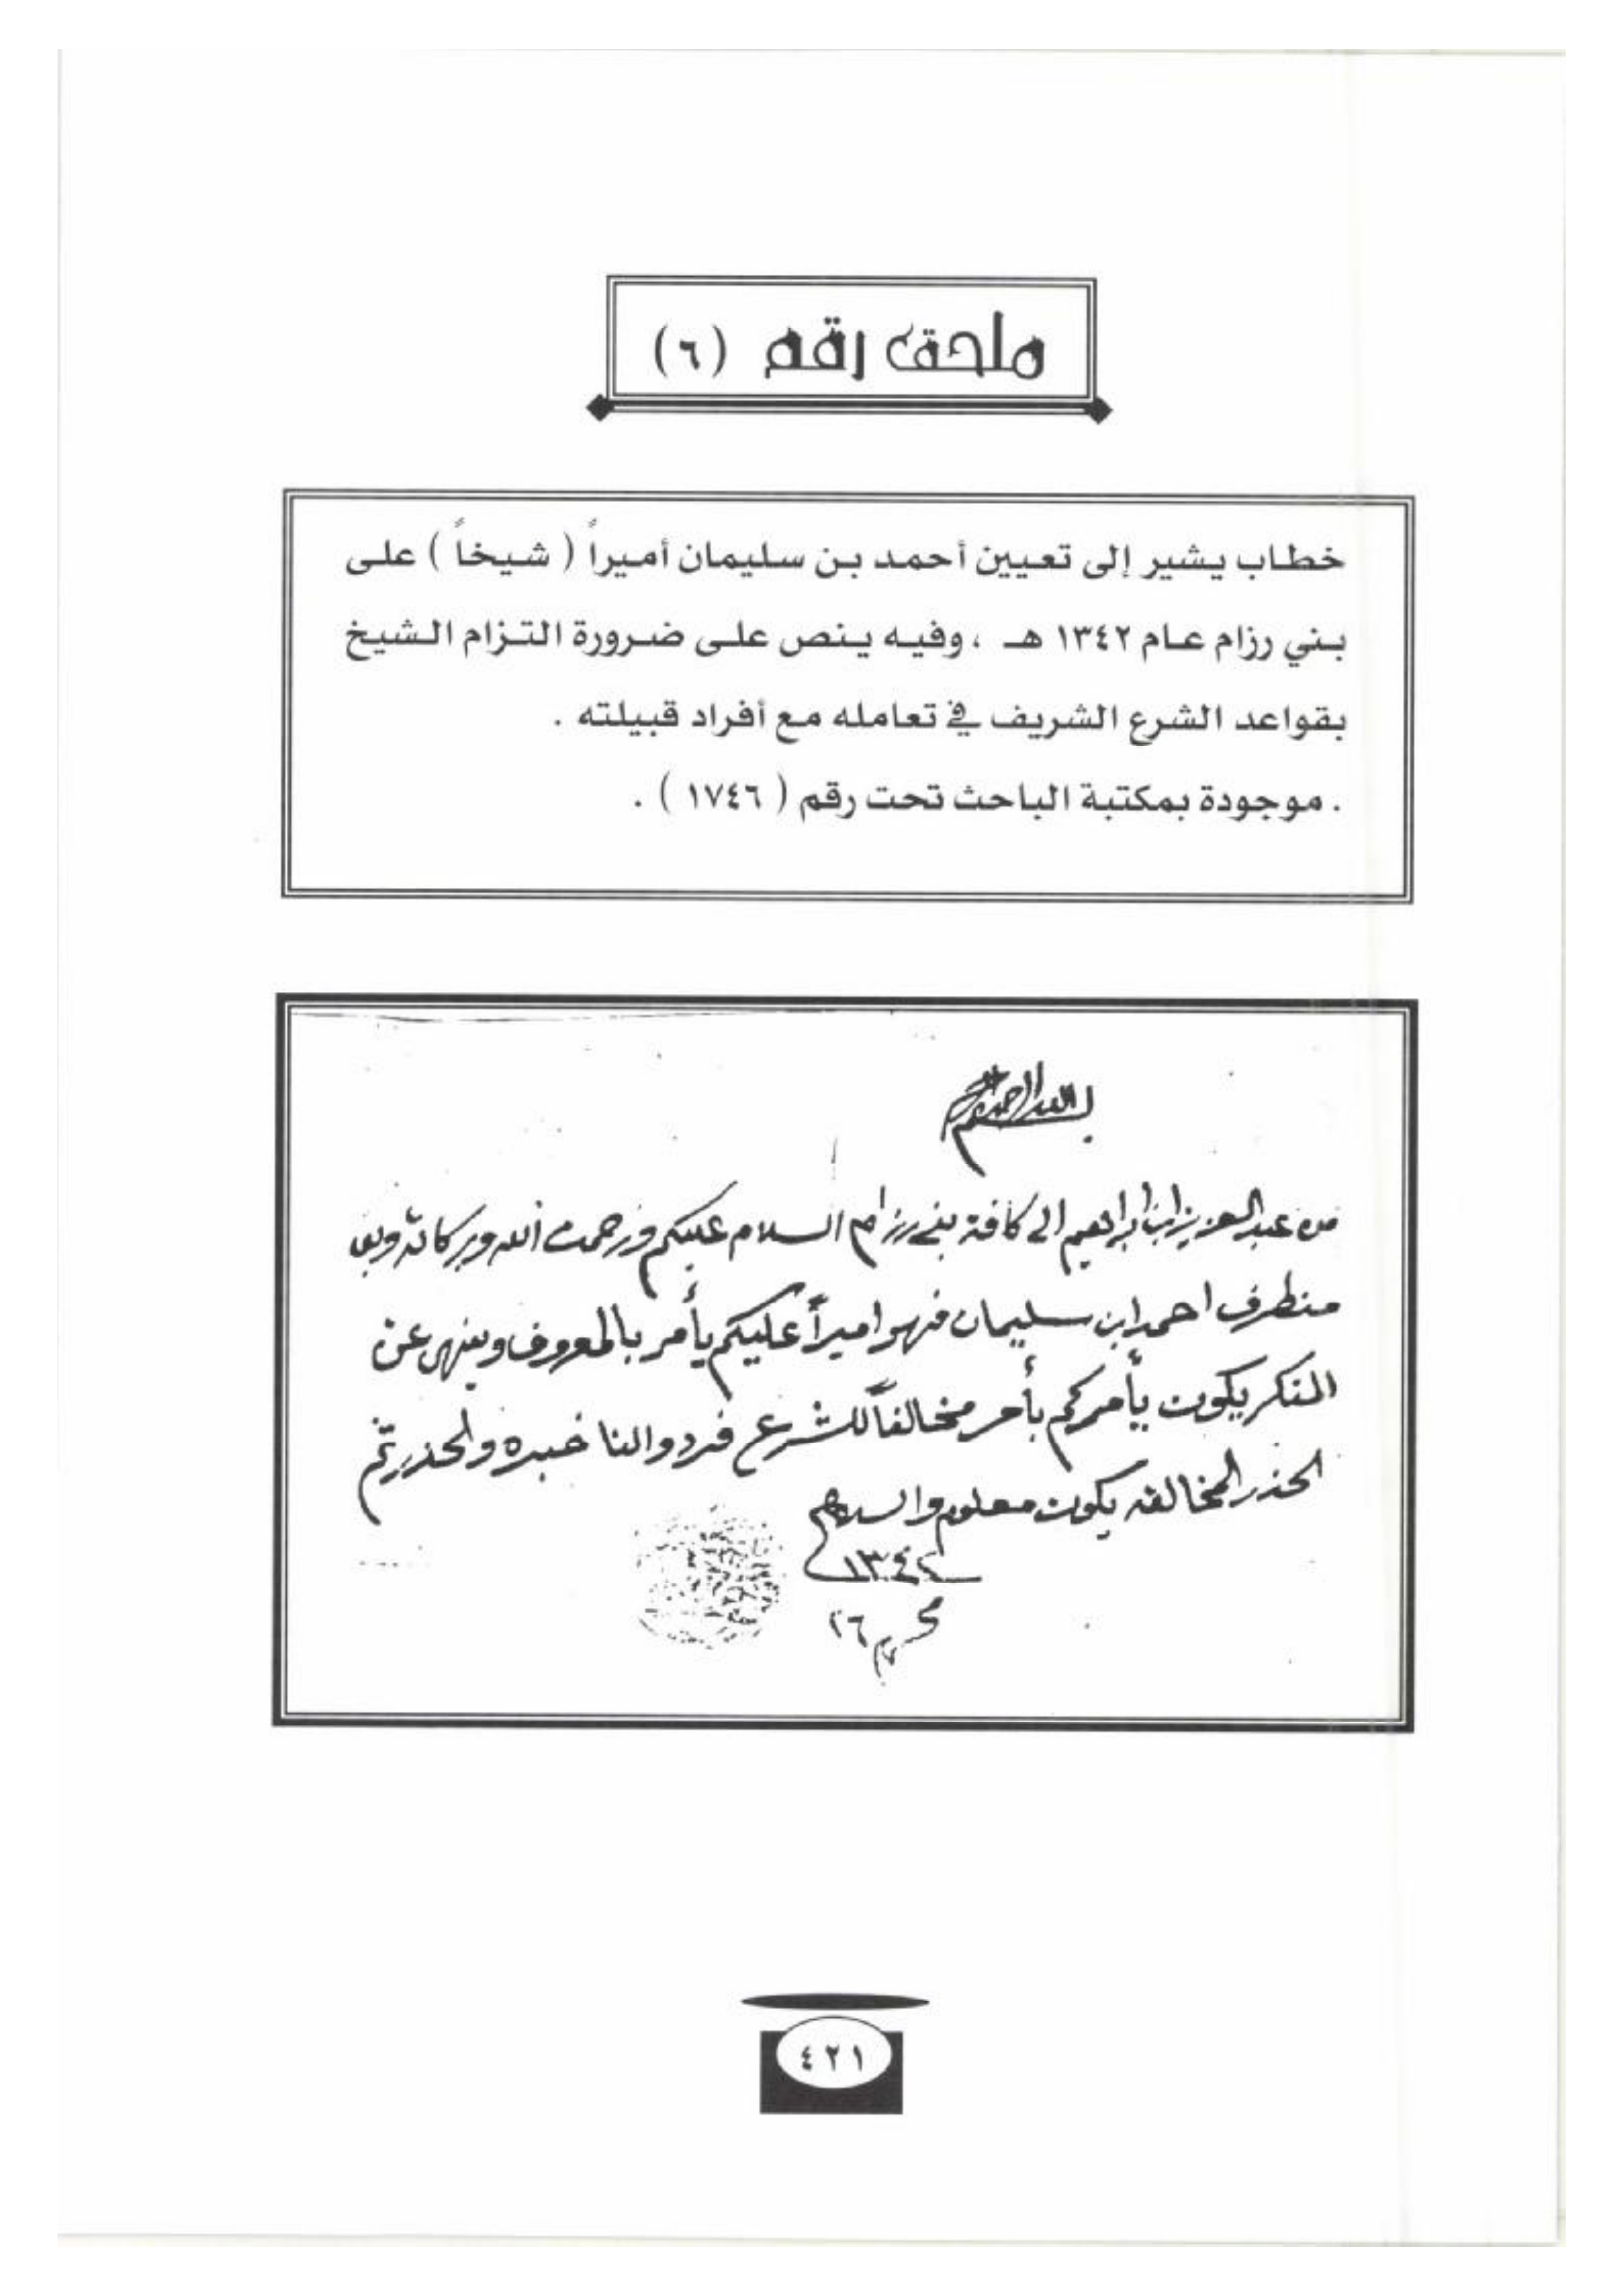 ملحق رقم (٦)
خطاب يشير إلى تعيين أحمد بن سليمان أميراً ( شيخاً ) على
بني رزام عام ١٣٤٢ هـ ، وفيه ينص على ضرورة التزام الشيخ
بقواعد الشرع الشريف في تعامله مع أفراد قبيلته .
. موجودة بمكتبة الباحث تحت رقم ( ١٧٤٦ ) .
بسم الله الرحمن الرحيم
من عبدالعزيز ابن ابراهيم الى كافة بني رزام السلام عليكم ورحمت الله وبركاته وبعد
منطرف احمد ابن سليمان فهو اميراً عليكم يأمر بالمعروف وينهى عن
المنكر يكون يأمركم بأمر مخالفاً للشرع فردوا لنا خبره والحذر ثم
الحذر المخالفه يكون معلوم والسلام
١٣٤٢
محرم ٢٦
٤٢١